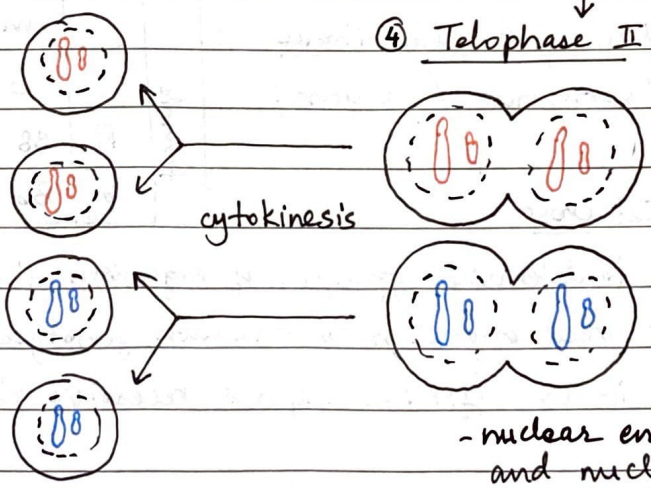 ④ Telophase II
cytokinesis
- nuclear en
and nucl